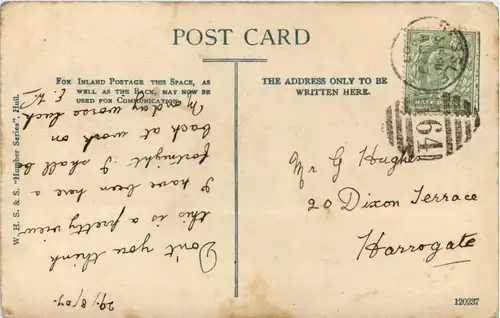 POST CARD
FOR INLAND POSTAGE THIS SPACE, AS
WELL AS THE BACK, MAY NOW BE
USED FOR COMMUNICATION.
THE ADDRESS ONLY TO BE
WRITTEN HERE.
29/8/07.
Don't you think
this is a pretty view
I have been here a
fortnight I shall be
back at work on
Monday worse luck
Mr G Hughes
20 Dixon Terrace
Harrogate
W. H. S. & S. "Humber Series", Hull.
64
120237